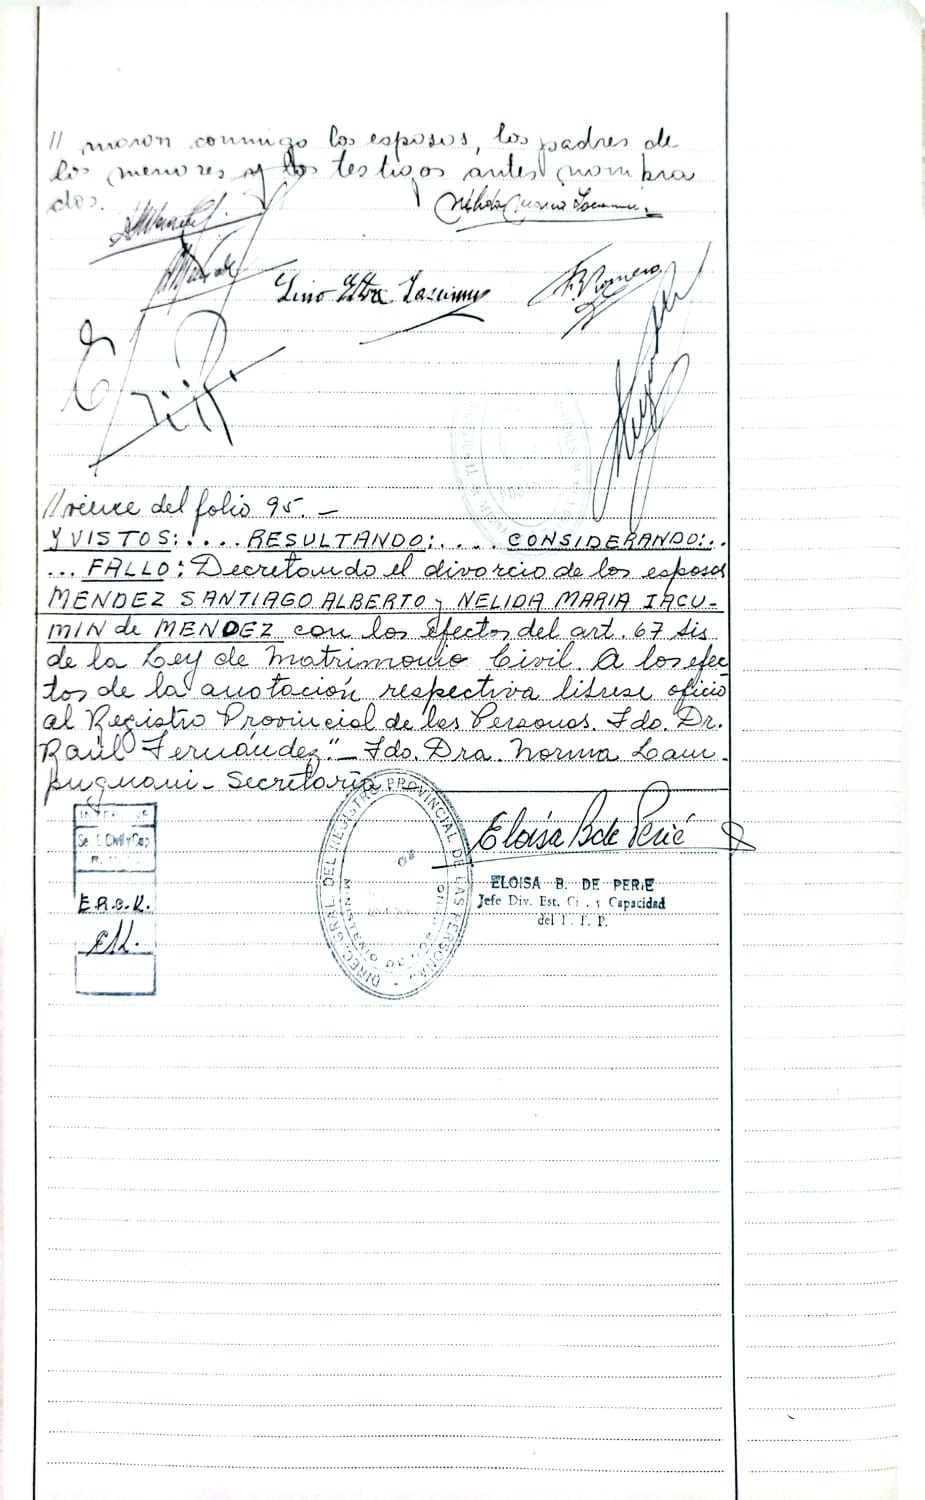 // maron conmigo los esposos, los padres de
los menores y los testigos antes nombra
dos.
Nélida María Iacumin
Lino Iacumin
F. Romero
// viene del folio 95. -
Y VISTOS: .... RESULTANDO: .... CONSIDERANDO: ..
... FALLO: Decretando el divorcio de los esposos
MENDEZ SANTIAGO ALBERTO y NELIDA MARIA IACU-
MIN de MENDEZ con los efectos del art. 67 bis
de la Ley de Matrimonio Civil. A los efec
tos de la anotación respectiva líbrese oficio
al Registro Provincial de las Personas. Fdo. Dr.
Raúl Fernández." - Fdo. Dra. Norma Lam-
pugnani - Secretaria
Se Civil y Cap
E.R.C.K.
DIREC. GRAL. DEL REGISTRO PROVINCIAL DE LAS PERSONAS
MINISTERIO DE GOBIERNO
Eloísa B de Perié
ELOISA B. DE PERIE
Jefe Div. Est. Ci . y Capacidad
del